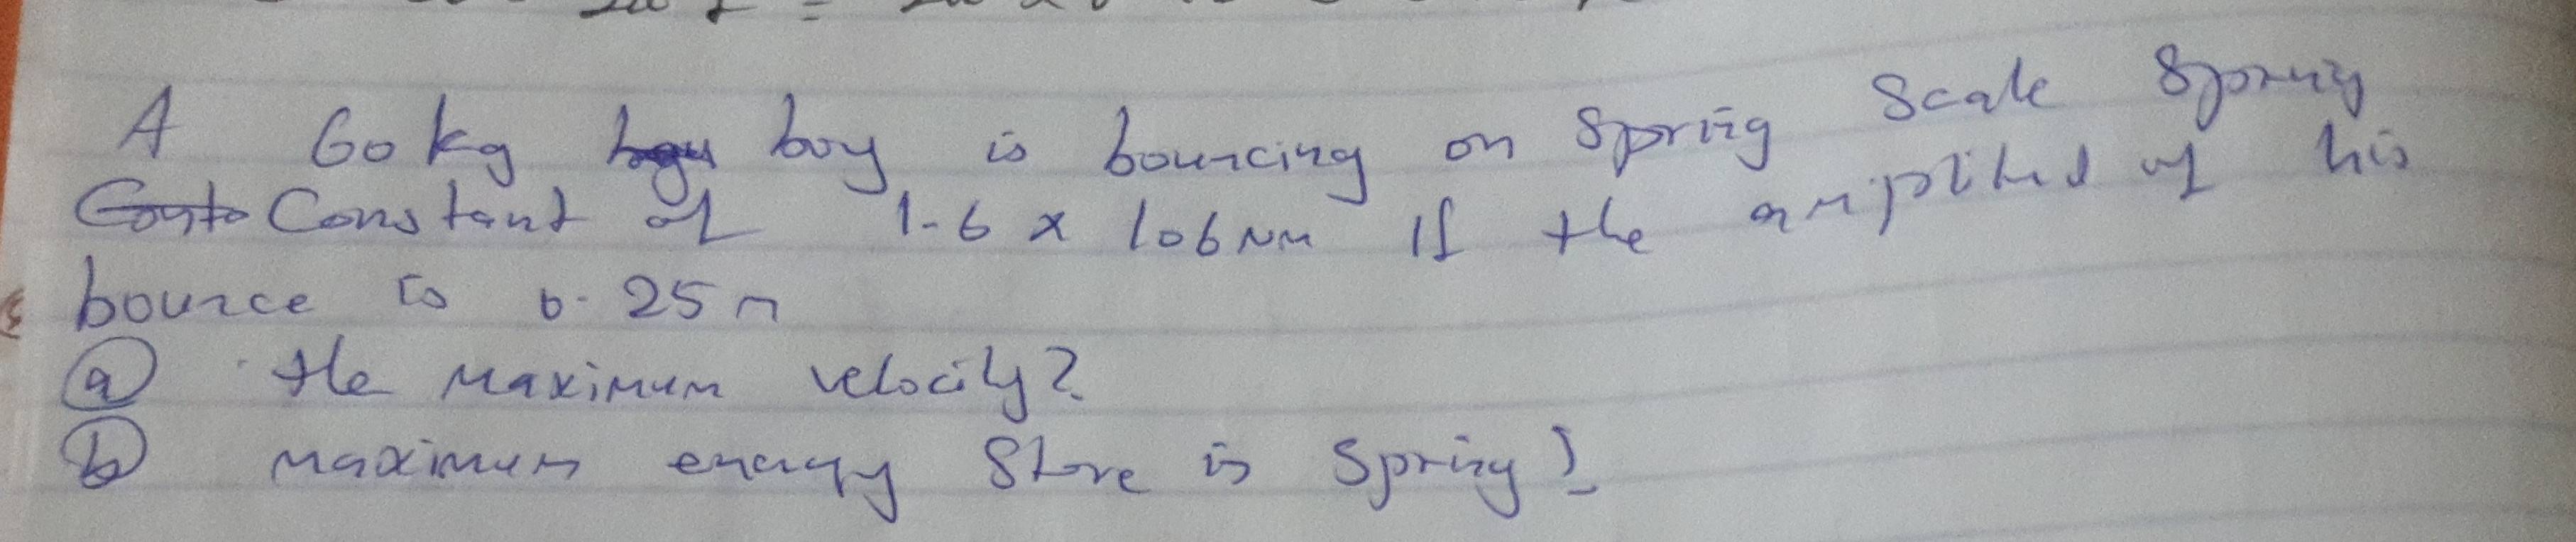 A 60kg boy is bouncing on spring scale spring
constant of 1.6 x 106 Nm If the amplitud of his
bounce is 0.25m
(a) the maximum velocity?
(b) maximum energy store is spring?